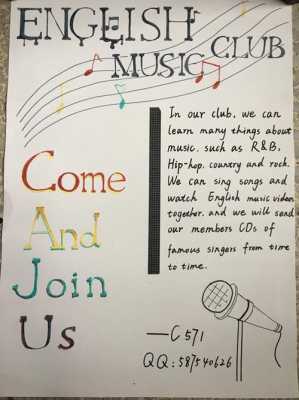 ENGLISH
MUSIC CLUB
Come
And
Join
Us
In our club, we can
learn many things about
music, such as R&B,
Hip-hop, country and rock.
We can sing songs and
watch English music videos
together, and we will send
our members CDs of
famous singers from time
to time.
—C571
QQ: 587540626